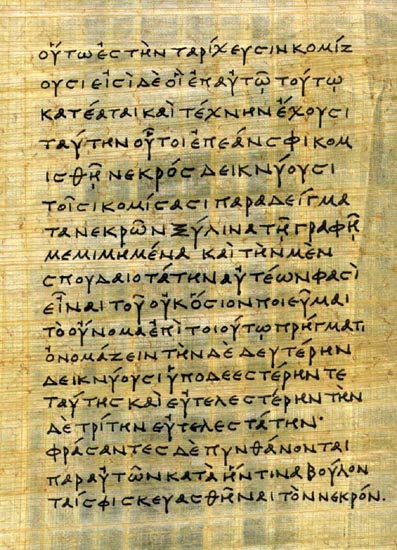 οὕτωἐστὴνταρίχευσινκομίζ
ουσιεἰσὶδὲοἳἐπαὐτῷτούτῳ
κατέαταικαὶτέχνηνἔχουσι
ταύτηνοὗτοιἐπεάνσφικομ
ισθῇνεκρόςδεικνύουσι
τοῖσικομίσασιπαραδείγμα
τανεκρῶνξύλινατῇγραφῇ
μεμιμημένα καὶτὴνμὲν
σπουδαιοτάτηναὐτέωνφασὶ
εἶναιτοῦοὐκὅσιονποιεῦμαι
τὸοὔνομαἐπὶτοιούτῳπρήγματι
ὀνομάζειντὴνδὲδευτέρην
δεικνύουσιὑποδεεστέρηντε
ταύτηςκαὶεὐτελεστέρηντὴν
δὲτρίτηνεὐτελεστάτην·
φράσαντεςδὲπυνθάνονται
παραὐτῶνκατὰἥντιναβούλον
ταίσφισκευασθῆναιτὸννεκρόν.